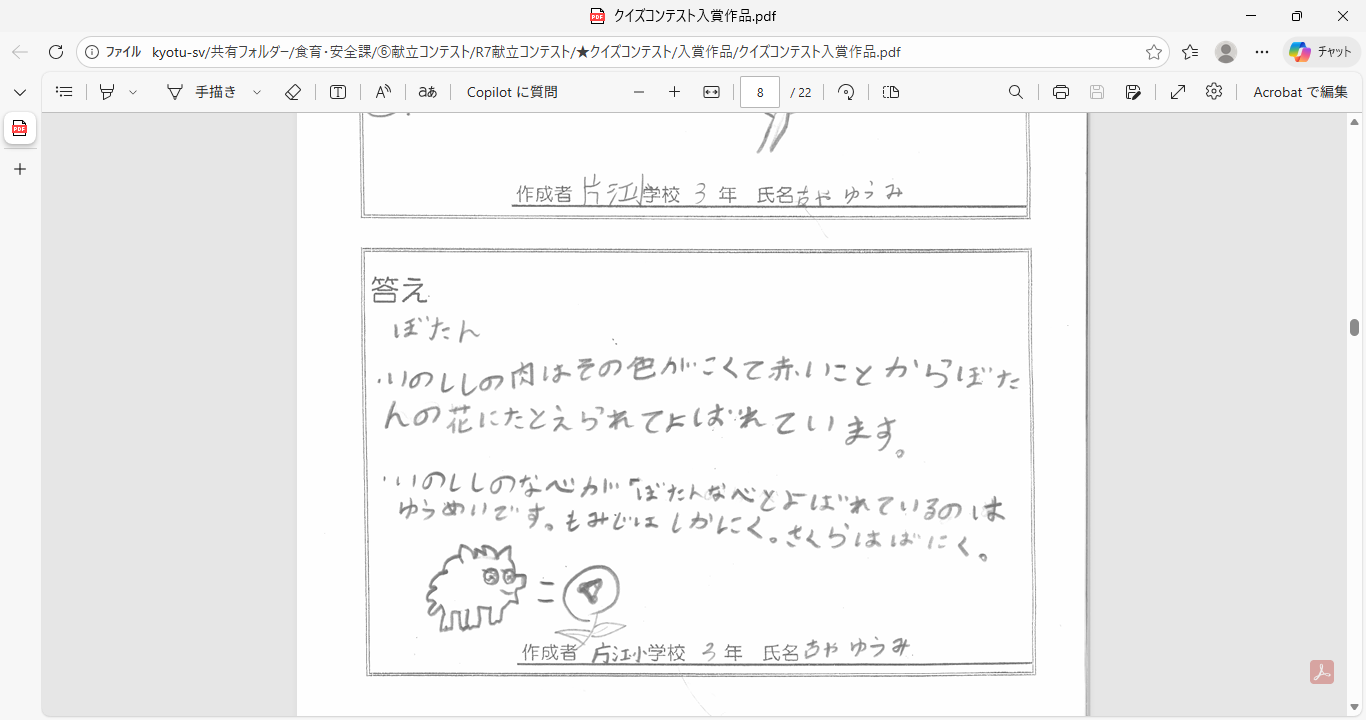 クイズコンテスト入賞作品.pdf
ファイル kyotu-sv/共有フォルダー/食育・安全課/⑥献立コンテスト/R7献立コンテスト/★クイズコンテスト/入賞作品/クイズコンテスト入賞作品.pdf
チャット
手描き
aあ
Copilot に質問
8 / 22
Acrobat で編集
作成者 片江小学校 3 年 氏名 古や ゆうみ
答え
ぼたん
・いのししの肉はその色がこくて赤いことからぼた
んの花にたとえられてよばれています。
・いのししのなべが「ぼたんなべとよばれているのは
ゆうめいです。もみじはしかにく。さくらはばにく。
=
作成者 片江小学校 3 年 氏名 古や ゆうみ